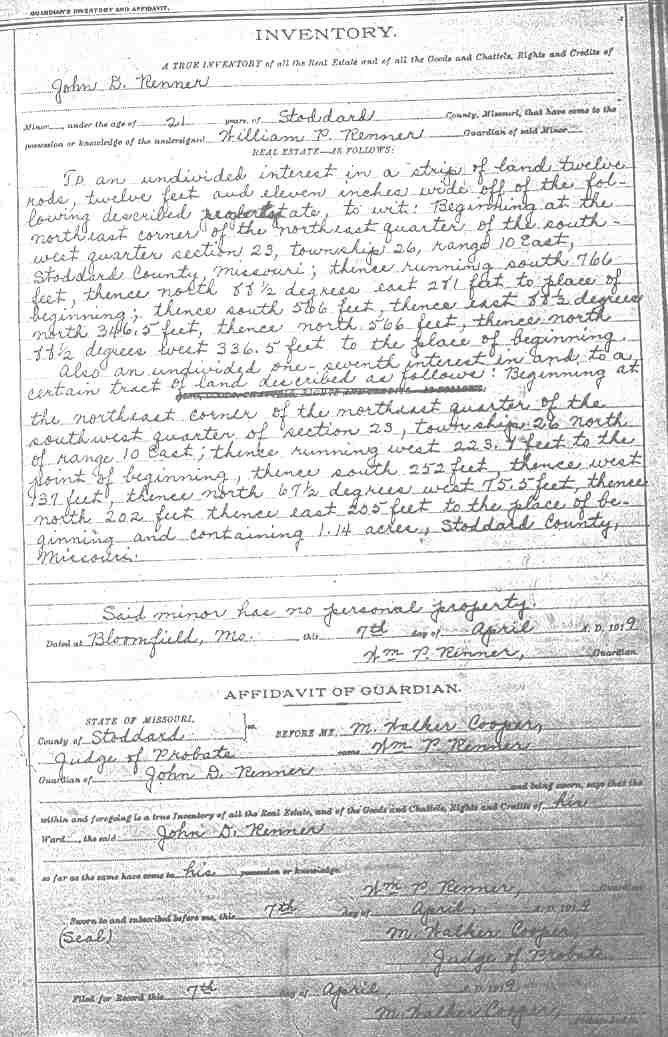 GUARDIAN'S INVENTORY AND AFFIDAVIT.
INVENTORY.
A TRUE INVENTORY of all the Real Estate and of all the Goods and Chattels, Rights and Credits of
John D. Renner
Minor, under the age of 21 years, of Stoddard County, Missouri, that have come to the
possession or knowledge of the undersigned William P. Renner Guardian of said Minor
REAL ESTATE—AS FOLLOWS:
an undivided interest in a strip of land twelve
rods, twelve feet and eleven inches wide off of the fol-
lowing described estate, to wit: Beginning at the
northeast corner of the northeast quarter of the south-
west quarter section 23, township 26, range 10 East,
Stoddard County, Missouri; thence running south 766
feet, thence north 88½ degrees east 281 feet to place of
beginning; thence south 566 feet, thence east 88½ degrees
north 346.5 feet, thence north 566 feet, thence north
88½ degrees west 336.5 feet to the place of beginning.
Also an undivided one-seventh interest in and to a
certain tract of land described as follows: Beginning at
GOODS AND CHATTELS, RIGHTS AND CREDITS, AS FOLLOWS:
the northeast corner of the northeast quarter of the
southwest quarter of section 23, township 26 north
of range 10 East; thence running west 223. feet to the
point of beginning, thence south 252 feet, thence west
137 feet, thence north 67½ degrees west 75.5 feet, thence
north 202 feet thence east 205 feet to the place of be-
ginning and containing 1.14 acres, Stoddard County,
Missouri.
Said minor has no personal property.
Dated at Bloomfield, Mo. this 7th day of April A. D. 1919
Wm P. Renner, Guardian.
AFFIDAVIT OF GUARDIAN.
STATE OF MISSOURI,
County of Stoddard } ss. BEFORE ME, M. Walker Cooper,
Judge of Probate came Wm P. Renner
Guardian of John D. Renner
and being sworn, says that the
within and foregoing is a true Inventory of all the Real Estate, and of the Goods and Chattels, Rights and Credits of his
Ward, the said John D. Renner
so far as the same have come to his possession or knowledge.
Wm P. Renner, Guardian
Sworn to and subscribed before me, this 7th day of April, A. D. 1919
(Seal) M. Walker Cooper,
Judge of Probate
Filed for Record this 7th day of April, A. D. 1919
M. Walker Cooper,